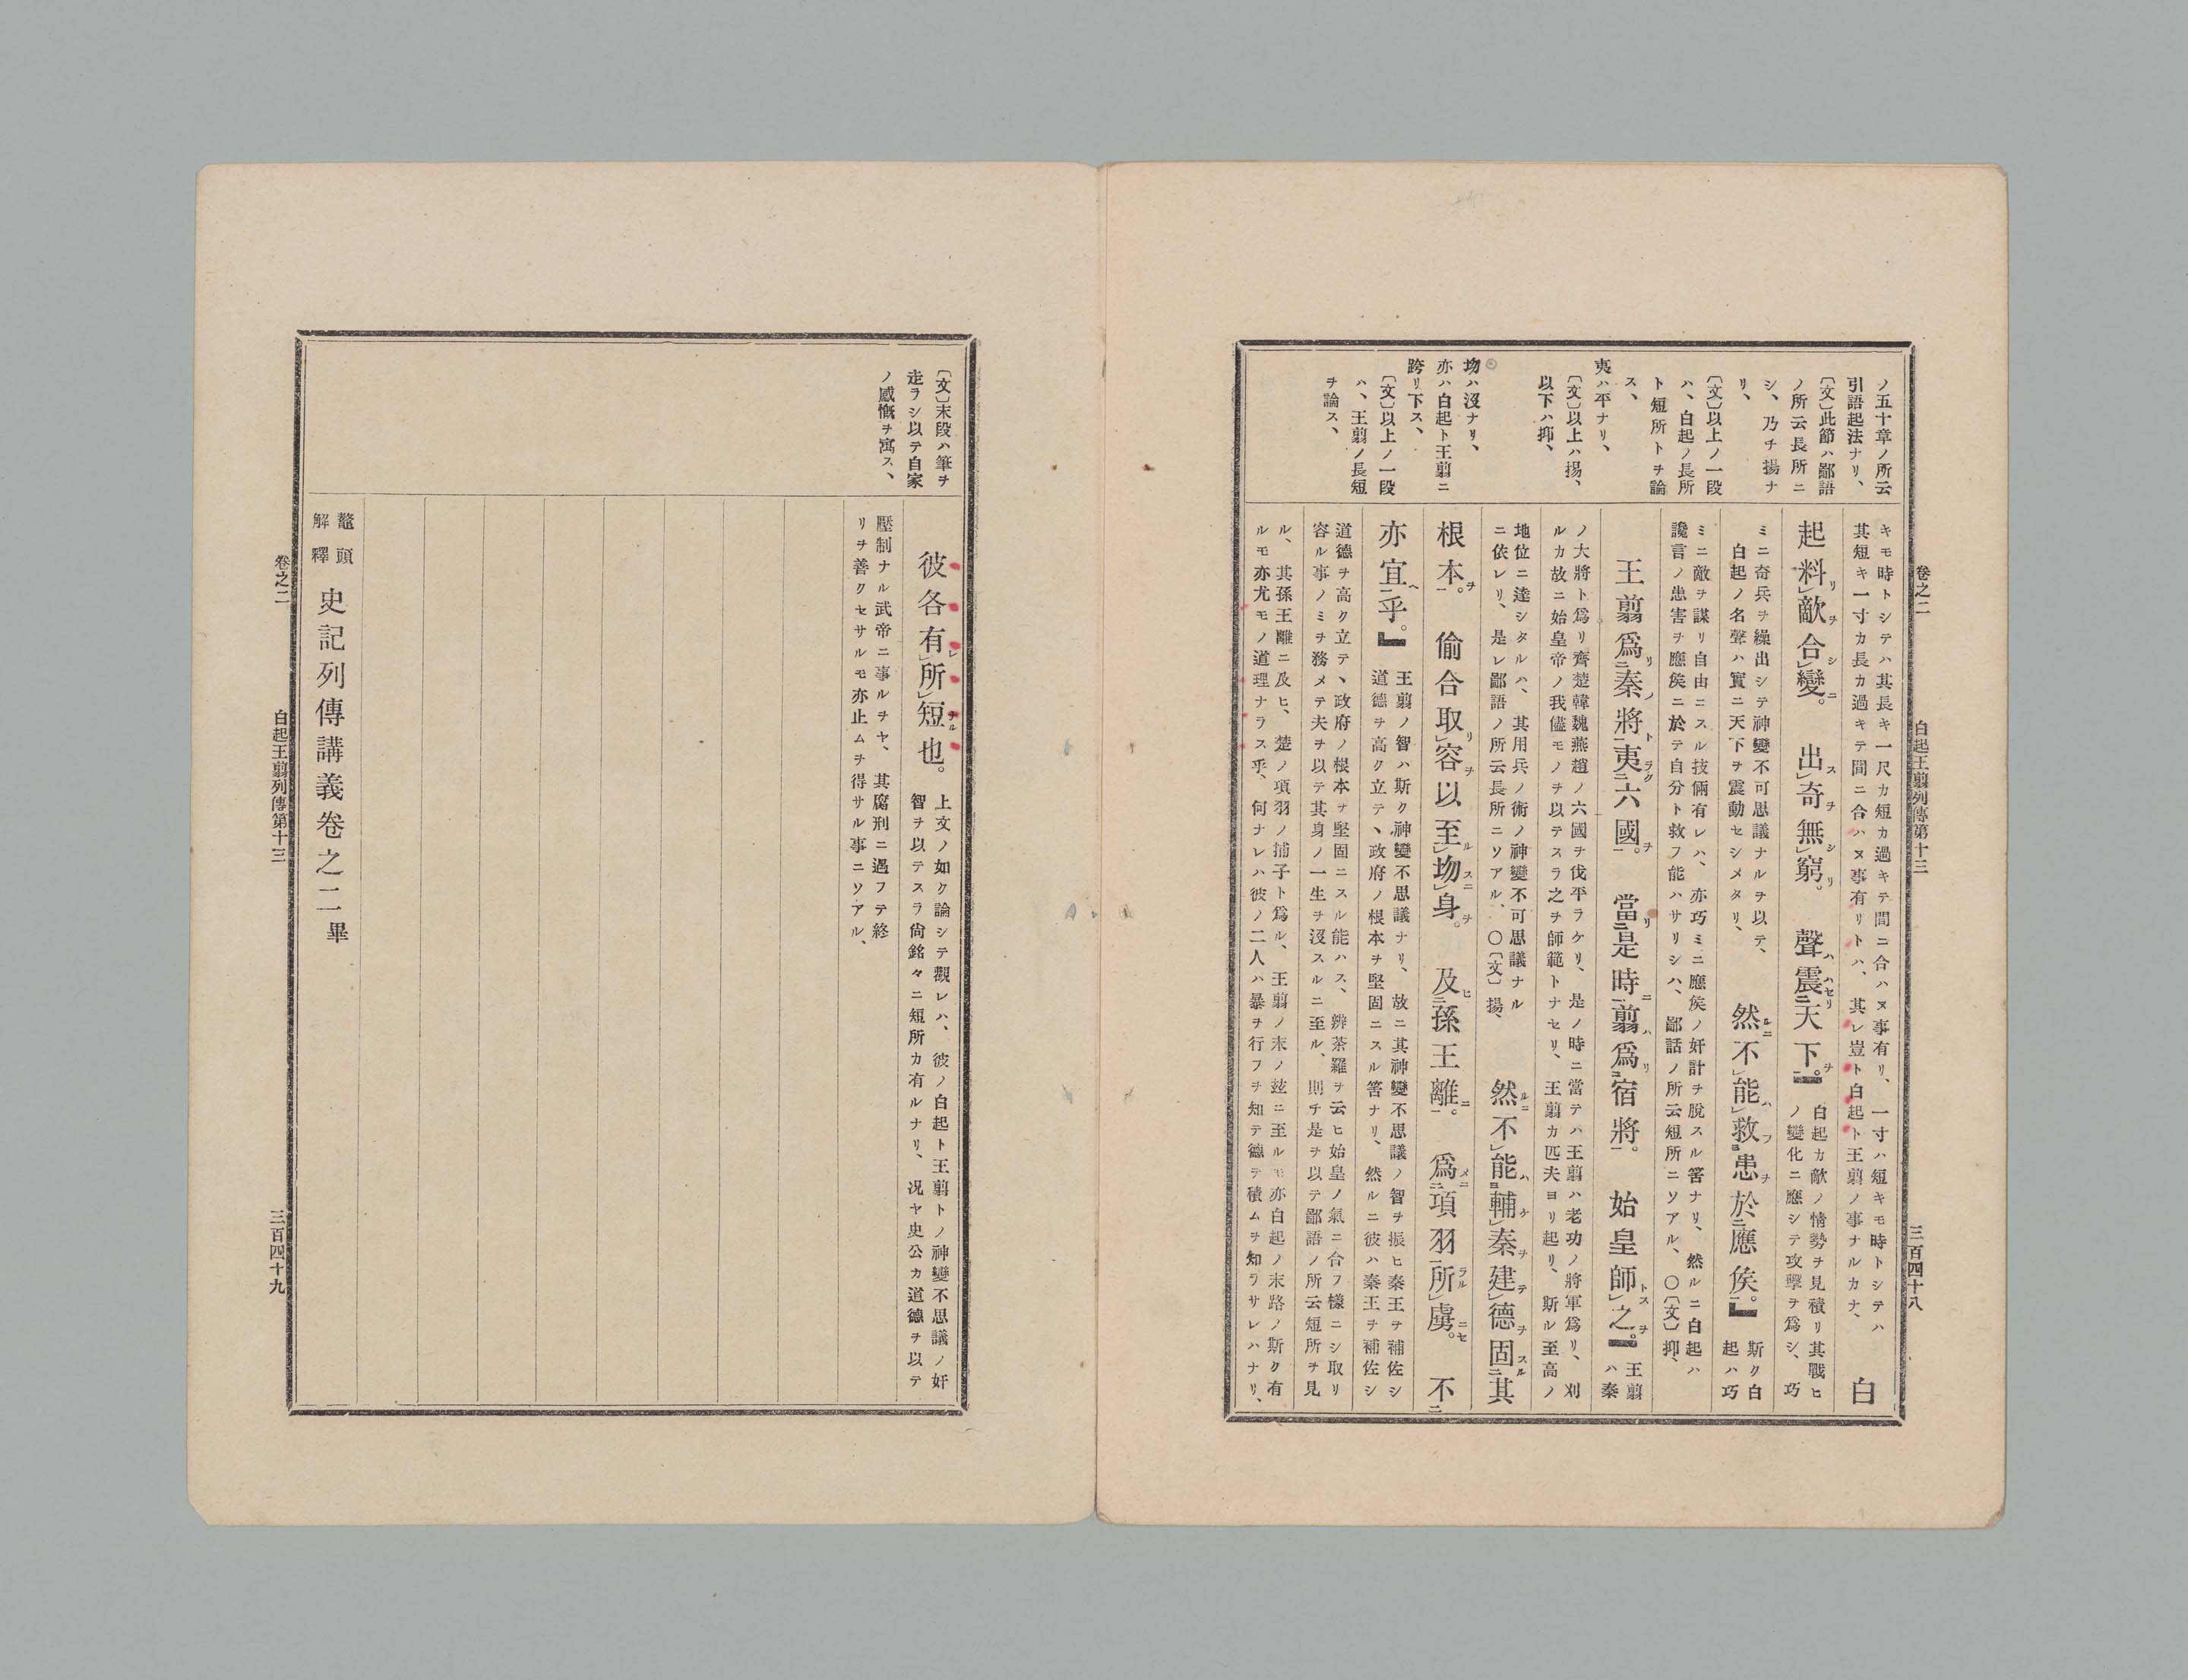 卷之二
白起王翦列傳第十三
三百四十八
ノ五十章ノ所云
引語起法ナリ、
〔文〕此節ハ鄙語
ノ所云長所ニ
シ、乃チ揚ナ
リ、
〔文〕以上ノ一段
ハ、白起ノ長所
ト短所トヲ論
ス、
夷ハ平ナリ、
〔文〕以上ハ揚、
以下ハ抑、
歾ハ沒ナリ、
亦ハ白起ト王翦ニ
跨リ下ス、
〔文〕以上ノ一段
ハ、王翦ノ長短
ヲ論ス、
キモ時トシテハ其長キ一尺カ短カ過キテ間ニ合ハヌ事有リ、一寸ハ短キモ時トシテハ
其短キ一寸カ長カ過キテ間ニ合ハヌ事有リトハ、其レ豈ト白起ト王翦ノ事ナルカナ、
白
起料リ敵ヲ合シ變ニ。出ス奇ヲ無シ窮リ。聲ハ震ハセリ天下ヲ。』
白起カ敵ノ情勢ヲ見積リ其戰ヒ
ノ變化ニ應シテ攻擊ヲ爲シ、巧
ミニ奇兵ヲ繰出シテ神變不可思議ナルヲ以テ、
白起ノ名聲ハ實ニ天下ヲ震動セシメタリ、
然ルニ不能ハ救フ患ヲ於應侯。』
斯ク白
起ハ巧
ミニ敵ヲ謀リ自由ニスル技倆有レハ、亦巧ミニ應侯ノ奸計ヲ脫スル筈ナリ、然ルニ白起ハ
讒言ノ患害ヲ應侯ニ於テ自分ト救フ能ハサリシハ、鄙語ノ所云短所ニソアル、〇〔文〕抑、
王翦爲リ秦ノ將ト夷ラク六國ヲ。當リ是時ニ翦ハ爲リ宿將。始皇師トス之ヲ。』
王翦
ハ秦
ノ大將ト爲リ齊楚韓魏燕趙ノ六國ヲ伐平ラケリ、是ノ時ニ當テハ王翦ハ老功ノ將軍爲リ、刈
ルカ故ニ始皇帝ノ我儘モノヲ以テスラ之ヲ師範トナセリ、王翦カ匹夫ヨリ起リ、斯ル至高ノ
地位ニ達シタルハ、其用兵ノ術ノ神變不可思議ナル
ニ依レリ、是レ鄙語ノ所云長所ニソアル、〇〔文〕揚、
然ルニ不能ハ輔ケ秦ヲ建テ德ヲ固スル其
根本ヲ。偷合取リ容ヲ以至ル歾スニ身ヲ。及ヒ孫王離ニ。爲メニ項羽所ラル虜ニセ。不
亦宜ヘ乎。』
王翦ノ智ハ斯ク神變不思議ナリ、故ニ其神變不思議ノ智ヲ振ヒ秦王ヲ補佐シ
道德ヲ高ク立テヽ政府ノ根本ヲ堅固ニスル筈ナリ、然ルニ彼ハ秦王ヲ補佐シ
道德ヲ高ク立テヽ政府ノ根本ヲ堅固ニスル能ハス、辨茶羅ヲ云ヒ始皇ノ氣ニ合フ樣ニシ取リ
容ル事ノミヲ務メテ夫ヲ以テ其身ノ一生ヲ沒スルニ至ル、則チ是ヲ以テ鄙語ノ所云短所ヲ見
ル、其孫王離ニ及ヒ、楚ノ項羽ノ捕子ト爲ル、王翦ノ末ノ玆ニ至ルモ亦白起ノ末路ノ斯ク有
ルモ亦尤モノ道理ナラス乎、何ナレハ彼ノ二人ハ暴ヲ行フヲ知テ德ヲ積ムヲ知ラサレハナリ、
〔文〕末段ハ筆ヲ
走ラシ以テ自家
ノ感慨ヲ寓ス、
彼各有レ所短ナル也。
上文ノ如ク論シテ觀レハ、彼ノ白起ト王翦トノ神變不思議ノ奸
智ヲ以テスラ尙銘々ニ短所カ有ルナリ、況ヤ史公カ道德ヲ以テ
壓制ナル武帝ニ事ルヲヤ、其腐刑ニ遇フテ終
リヲ善クセサルモ亦止ムヲ得サル事ニソアル、
鼇頭
解釋
史記列傳講義卷之二畢
卷之二
白起王翦列傳第十三
三百四十九